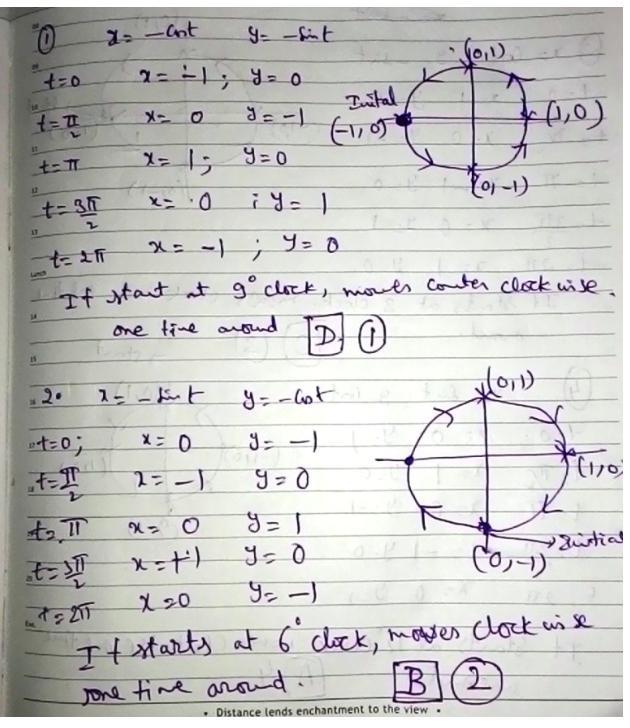 ① x = -Cost y = -Sint
t=0 x = -1 ; y = 0
t=π/2 x = 0 y = -1
t=π x = 1 ; y = 0
t=3π/2 x = 0 ; y = 1
t=2π x = -1 ; y = 0
(0,1)
Inital
(-1,0)
(1,0)
(0,-1)
It start at 9° clock, moves couter clock wise.
one time around D. ①
2. x = -Sint y = -Cost
t=0; x = 0 y = -1
t=π/2 x = -1 y = 0
t=π x = 0 y = 1
t=3π/2 x = +1 y = 0
t=2π x=0 y = -1
(0,1)
(1,0)
Initial
(0,-1)
It starts at 6° clock, moves clock wise
one time around. B ②
• Distance lends enchantment to the view •